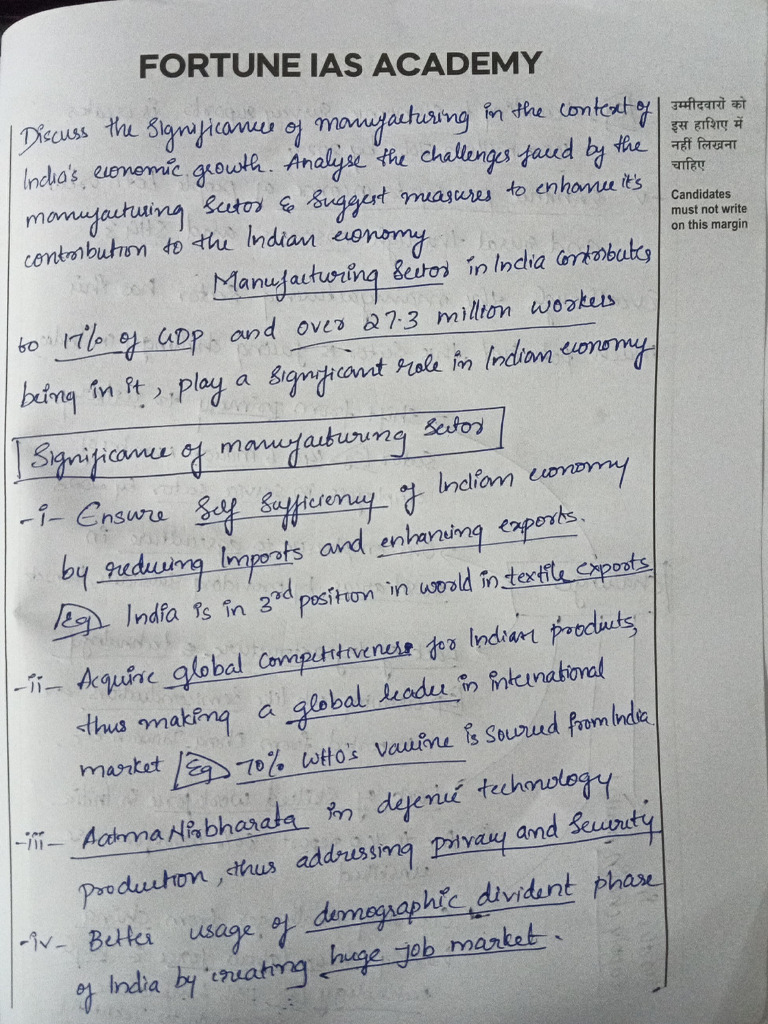 FORTUNE IAS ACADEMY
उम्मीदवारों को
इस हाशिए में
नहीं लिखना
चाहिए
Candidates
must not write
on this margin
Discuss the significance of manufacturing in the context of
India's economic growth. Analyse the challenges faced by the
manufacturing sector & suggest measures to enhance it's
contribution to the Indian economy
Manufacturing Sector in India contributes
to 17% of GDP and over 27.3 million workers
being in it, play a significant role in Indian economy
Significance of manufacturing sector
-i- Ensure Self Sufficiency of Indian economy
by reducing Imports and enhancing exports.
Eg India is in 3rd position in world in textile exports
-ii- Acquire global competitiveness for Indian products,
thus making a global leader in international
market Eg 70% WHO's vaccine is sourced from India
-iii- Aatma Nirbharata in defence technology
production, thus addressing privacy and security
-iv- Better usage of demographic divident phase
of India by creating huge job market.